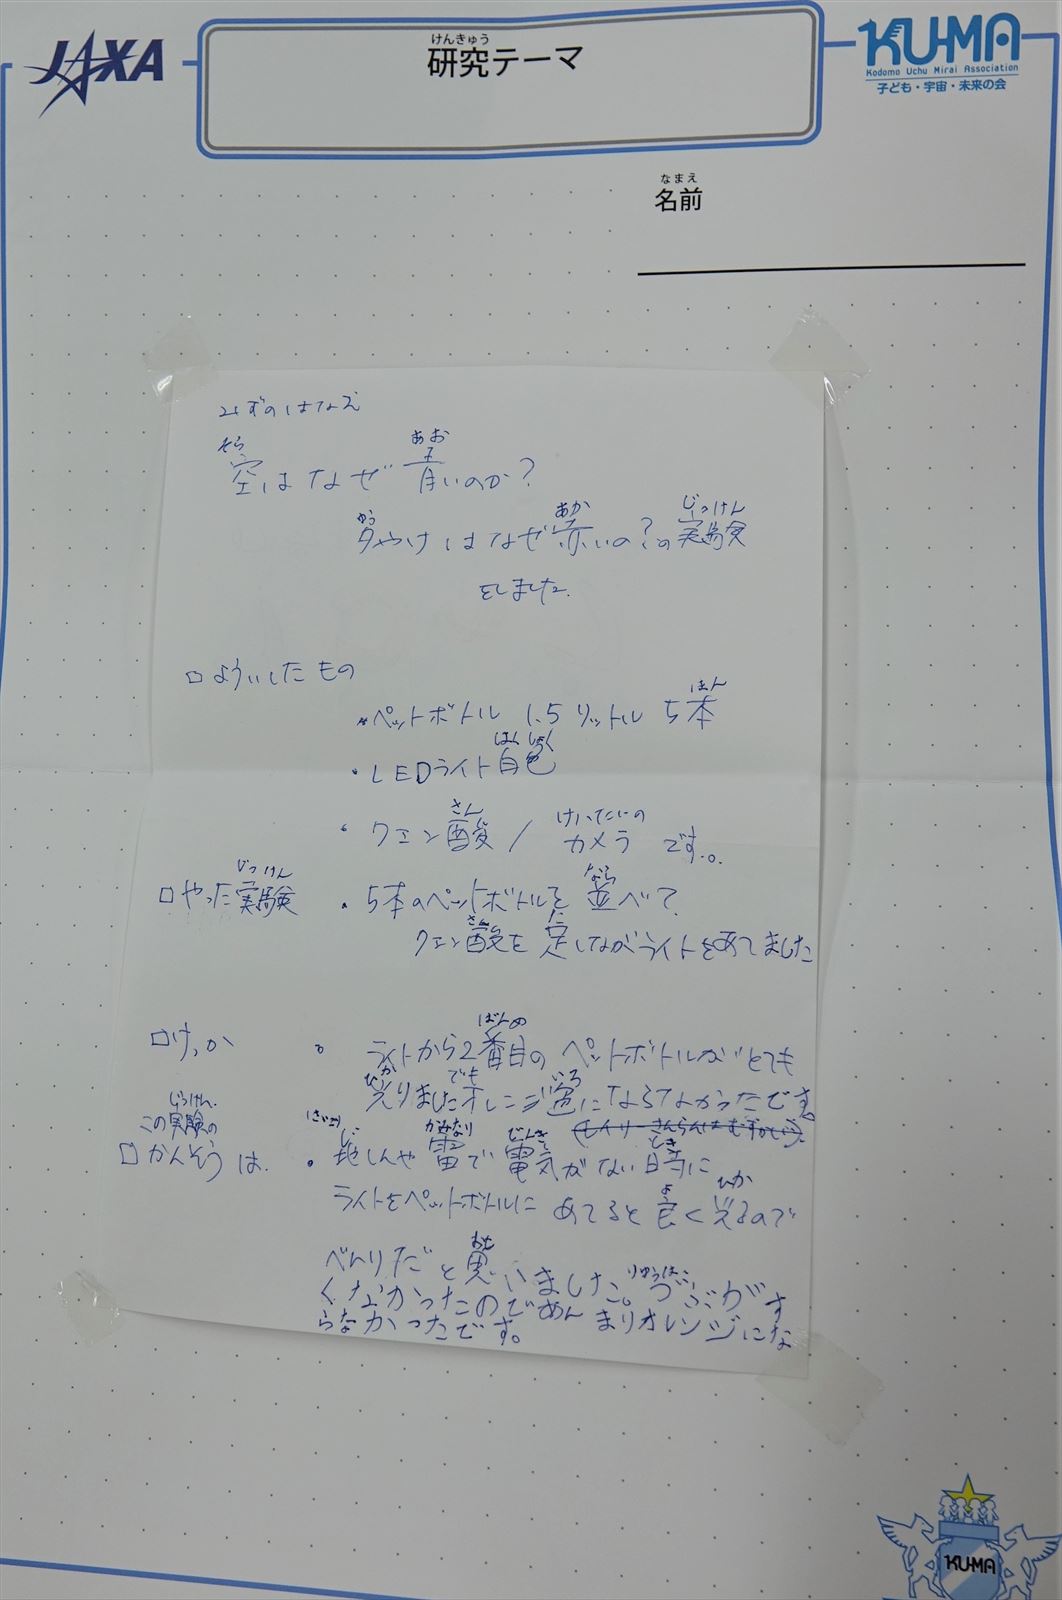 JAXA
けんきゅう
研究テーマ
KU-MA
Kodomo Uchu Mirai Association
子ども・宇宙・未来の会
なまえ
名前
みずのはなえ
そら あお
空はなぜ青いのか?
あか じっけん
夕やけはなぜ赤いの?の実験
をしました.
□よういしたもの
はん
・ペットボトル 1.5リットル 5本
はくしょく
・LEDライト白色
さん けいたいの
・クエン酸/カメラです。
じっけん なら
□やった実験 ・5本のペットボトルを並べて
さん た
クエン酸を足しながライトをあてました
ばんめ
□けっか ・ライトから2番目のペットボトルがとても
ひか でも いろ
光りましたオレンジ色にならなかったです。
じっけん
この実験の
じ かみなり でんき とき
□かんそうは. ・地しんや雷で電気がない時に
よ ひか
ライトをペットボトルにあてると良く光るので
おも
べんりだと思いました。つぶがす
くなかったのであんまりオレンジにな
らなかったです。
KU-MA